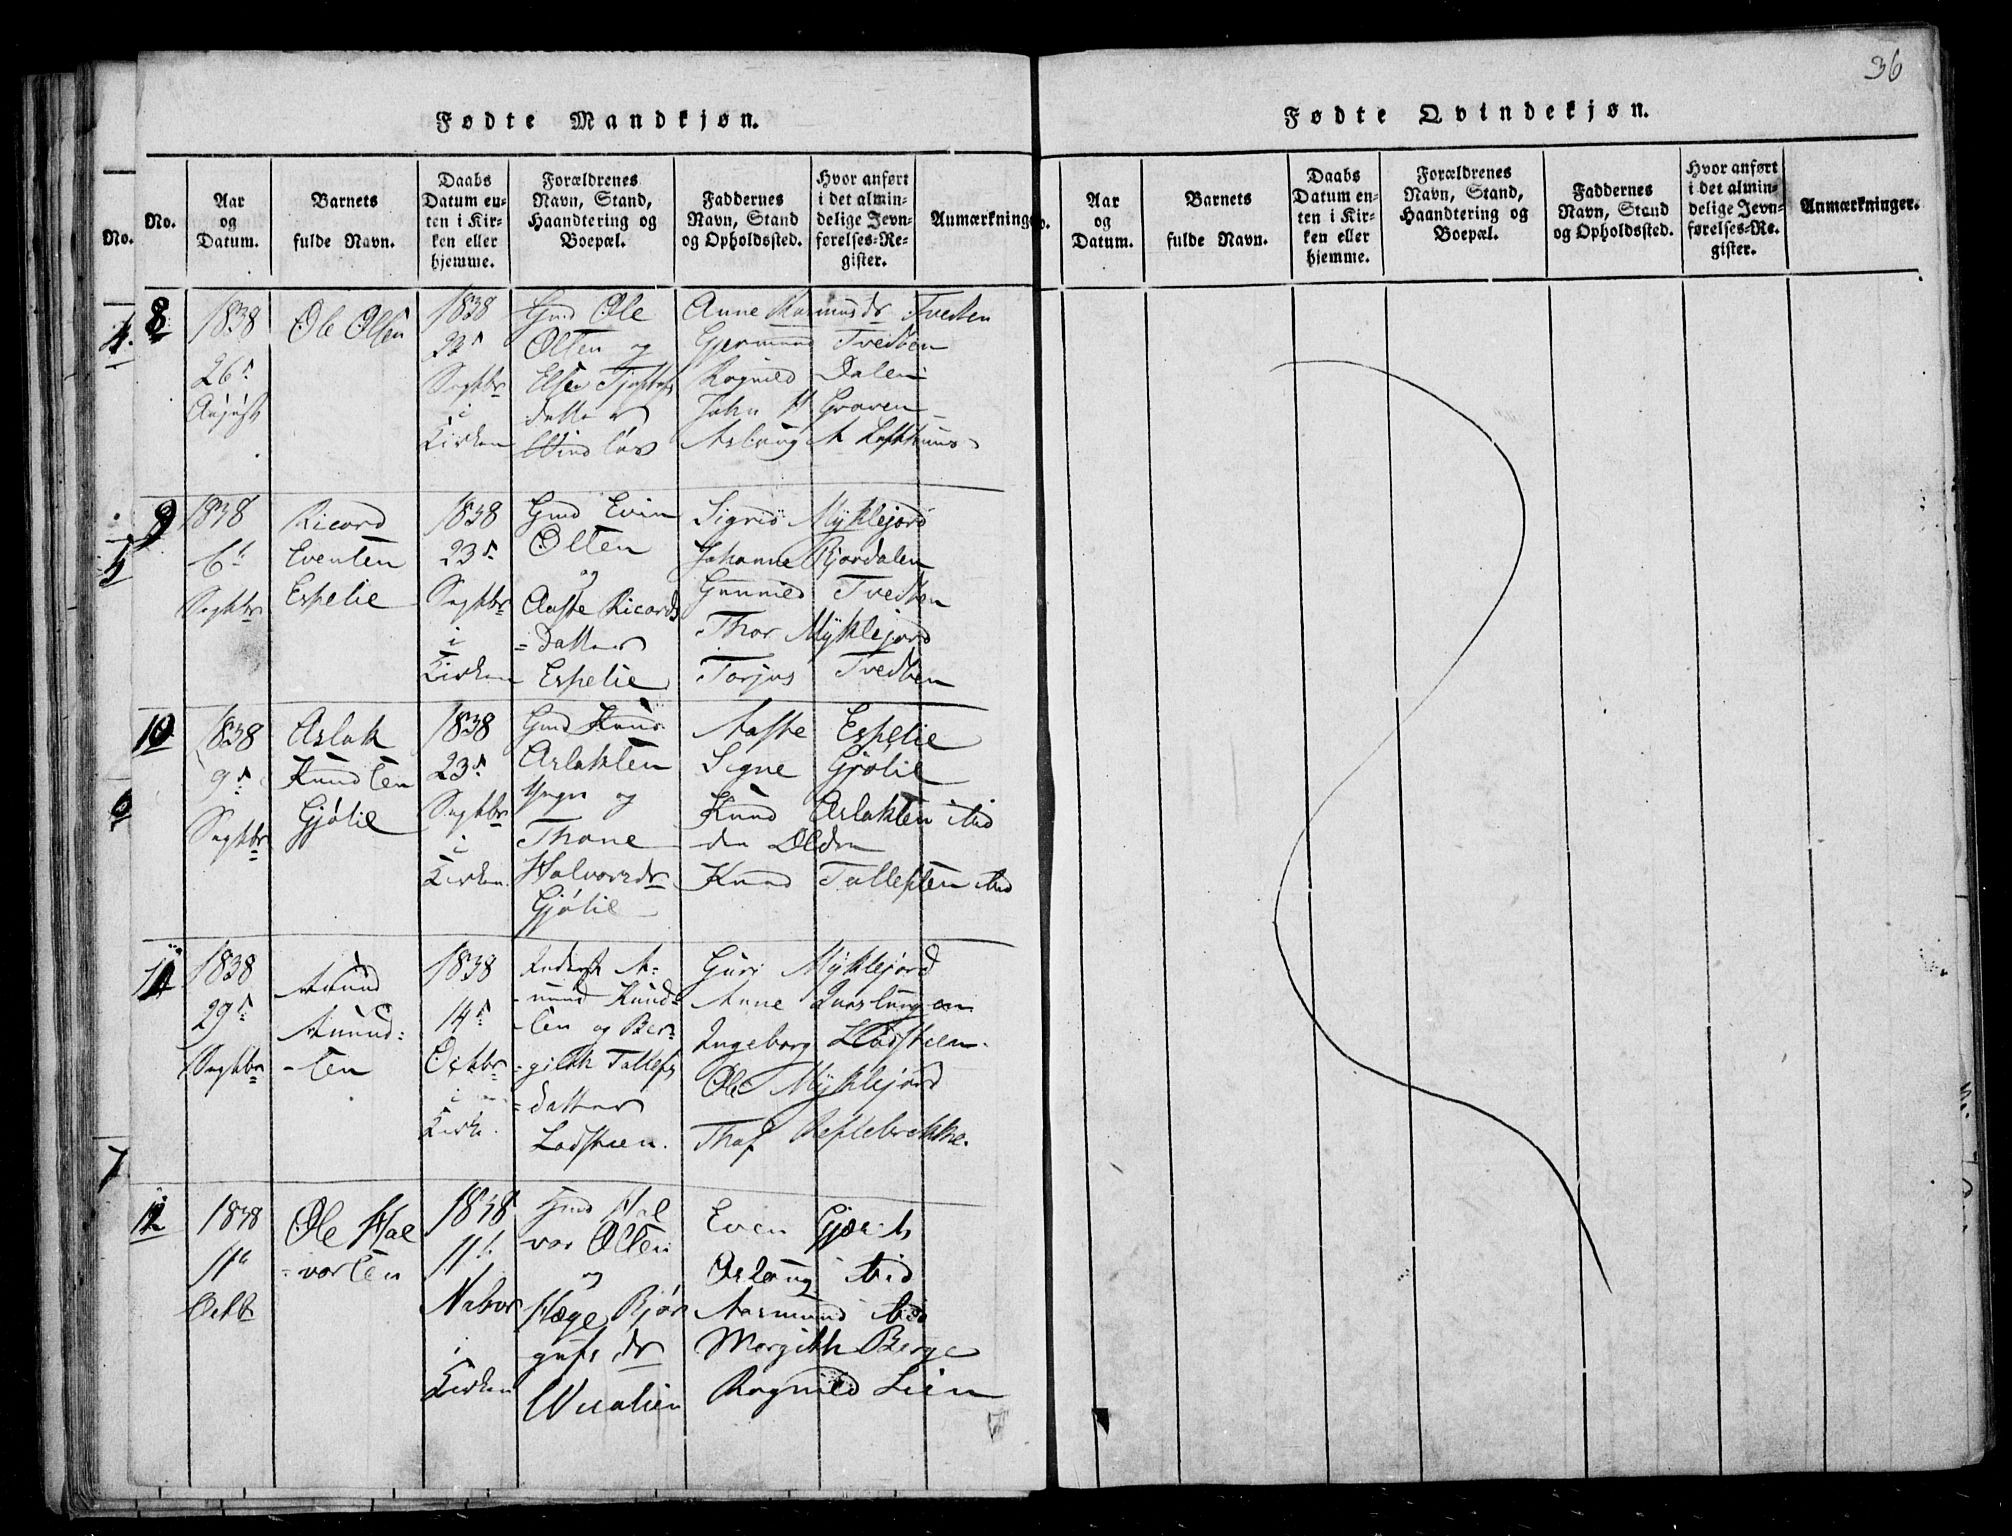 36
Fødte Mandkjøn.
No.
No.
Aar
og
Datum.
Barnets
fulde Navn.
Daabs
Datum en-
ten i Kir-
ken eller
hjemme.
Forældrenes
Navn, Stand,
Haandtering og
Boepæl.
Faddernes
Navn, Stand
og Opholdssted.
Hvor anført
i det almin-
delige Jevn-
førelses-Re-
gister.
Anmærkninge
8
1838
26
August
Ole Olsen
1838
23
Septbr
i
Kirken
Gmd Ole
Olsen og
datter
Anne Rasmusdr Tvedten
Gjermund Tvedten
Ragnild Dalen
John H Graven
Aslaug A
9
1838
6
Septbr
Ricard
Evensen
Espelie
1838
23
Septbr
i
Kirken
Gmd Even
Olsen
og
Aaste Ricards
=datter
Espelie
Sigrid Myklejord
Johanne
Gunnild Tvedten
Thor Myklejord
Torjus Tvedten
10
1838
9
Septbr
Aslak
Knudsen
Gjølie
1838
23
Septbr
i
Kirken
Gmd Knud
Aslaksen
og
Thone
Halvorsdr
Gjølie
Aaste Espelie
Signe Gjølie
Knud Aslaksen ibid
den Oldre
Knud Tallefsen ibid
11
1838
29
Septbr
Anund
Anund=
-sen
1838
14
Octbr
i
Kirk
A=
-nund Knud-
-sen og Ber=
-gith Tallefs
=datter
Ladsteen.
Guri Myklejord
Anne
Ingeborg Ladsteen.
Ole Myklejord
12
1838
11
Octb
Ole Hal
=vorsen
1838
11
Nvbr
i
Kirken
Gmd Hal
vor Olsen
og
Hæge Bjør
gufs dr
Even
Aslaug ibid
Aasmund ibid
Margith Berge
Ragnild Lien
Fødte Qvindekjøn.
Aar
og
Datum.
Barnets
fulde Navn.
Daabs
Datum en-
ten i Kir-
ken eller
hjemme.
Forældrenes
Navn, Stand,
Haandtering og
Boepæl.
Faddernes
Navn, Stand
og Opholdssted.
Hvor anført
i det almin-
delige Jevn-
førelses-Re-
gister.
Anmærkninger.